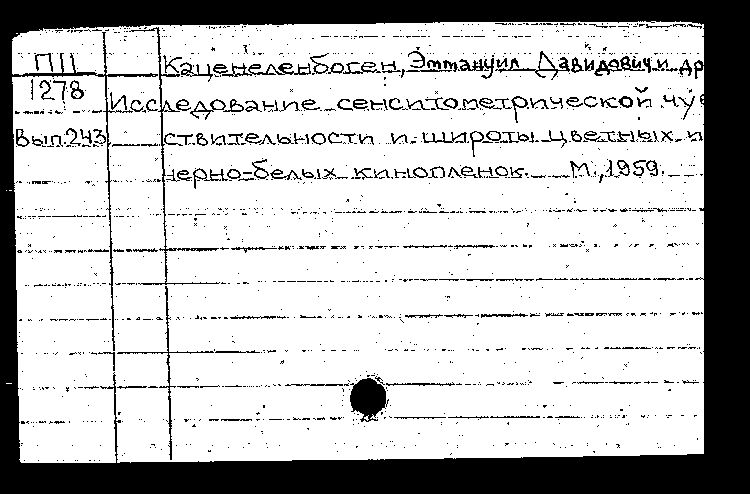 П11 Каценеленбоген, Эммануил Давидович и др
1278 Исследование сенситометрической чув
Вып.243 ствительности и широты цветных и
черно-белых кинопленок. М., 1959.